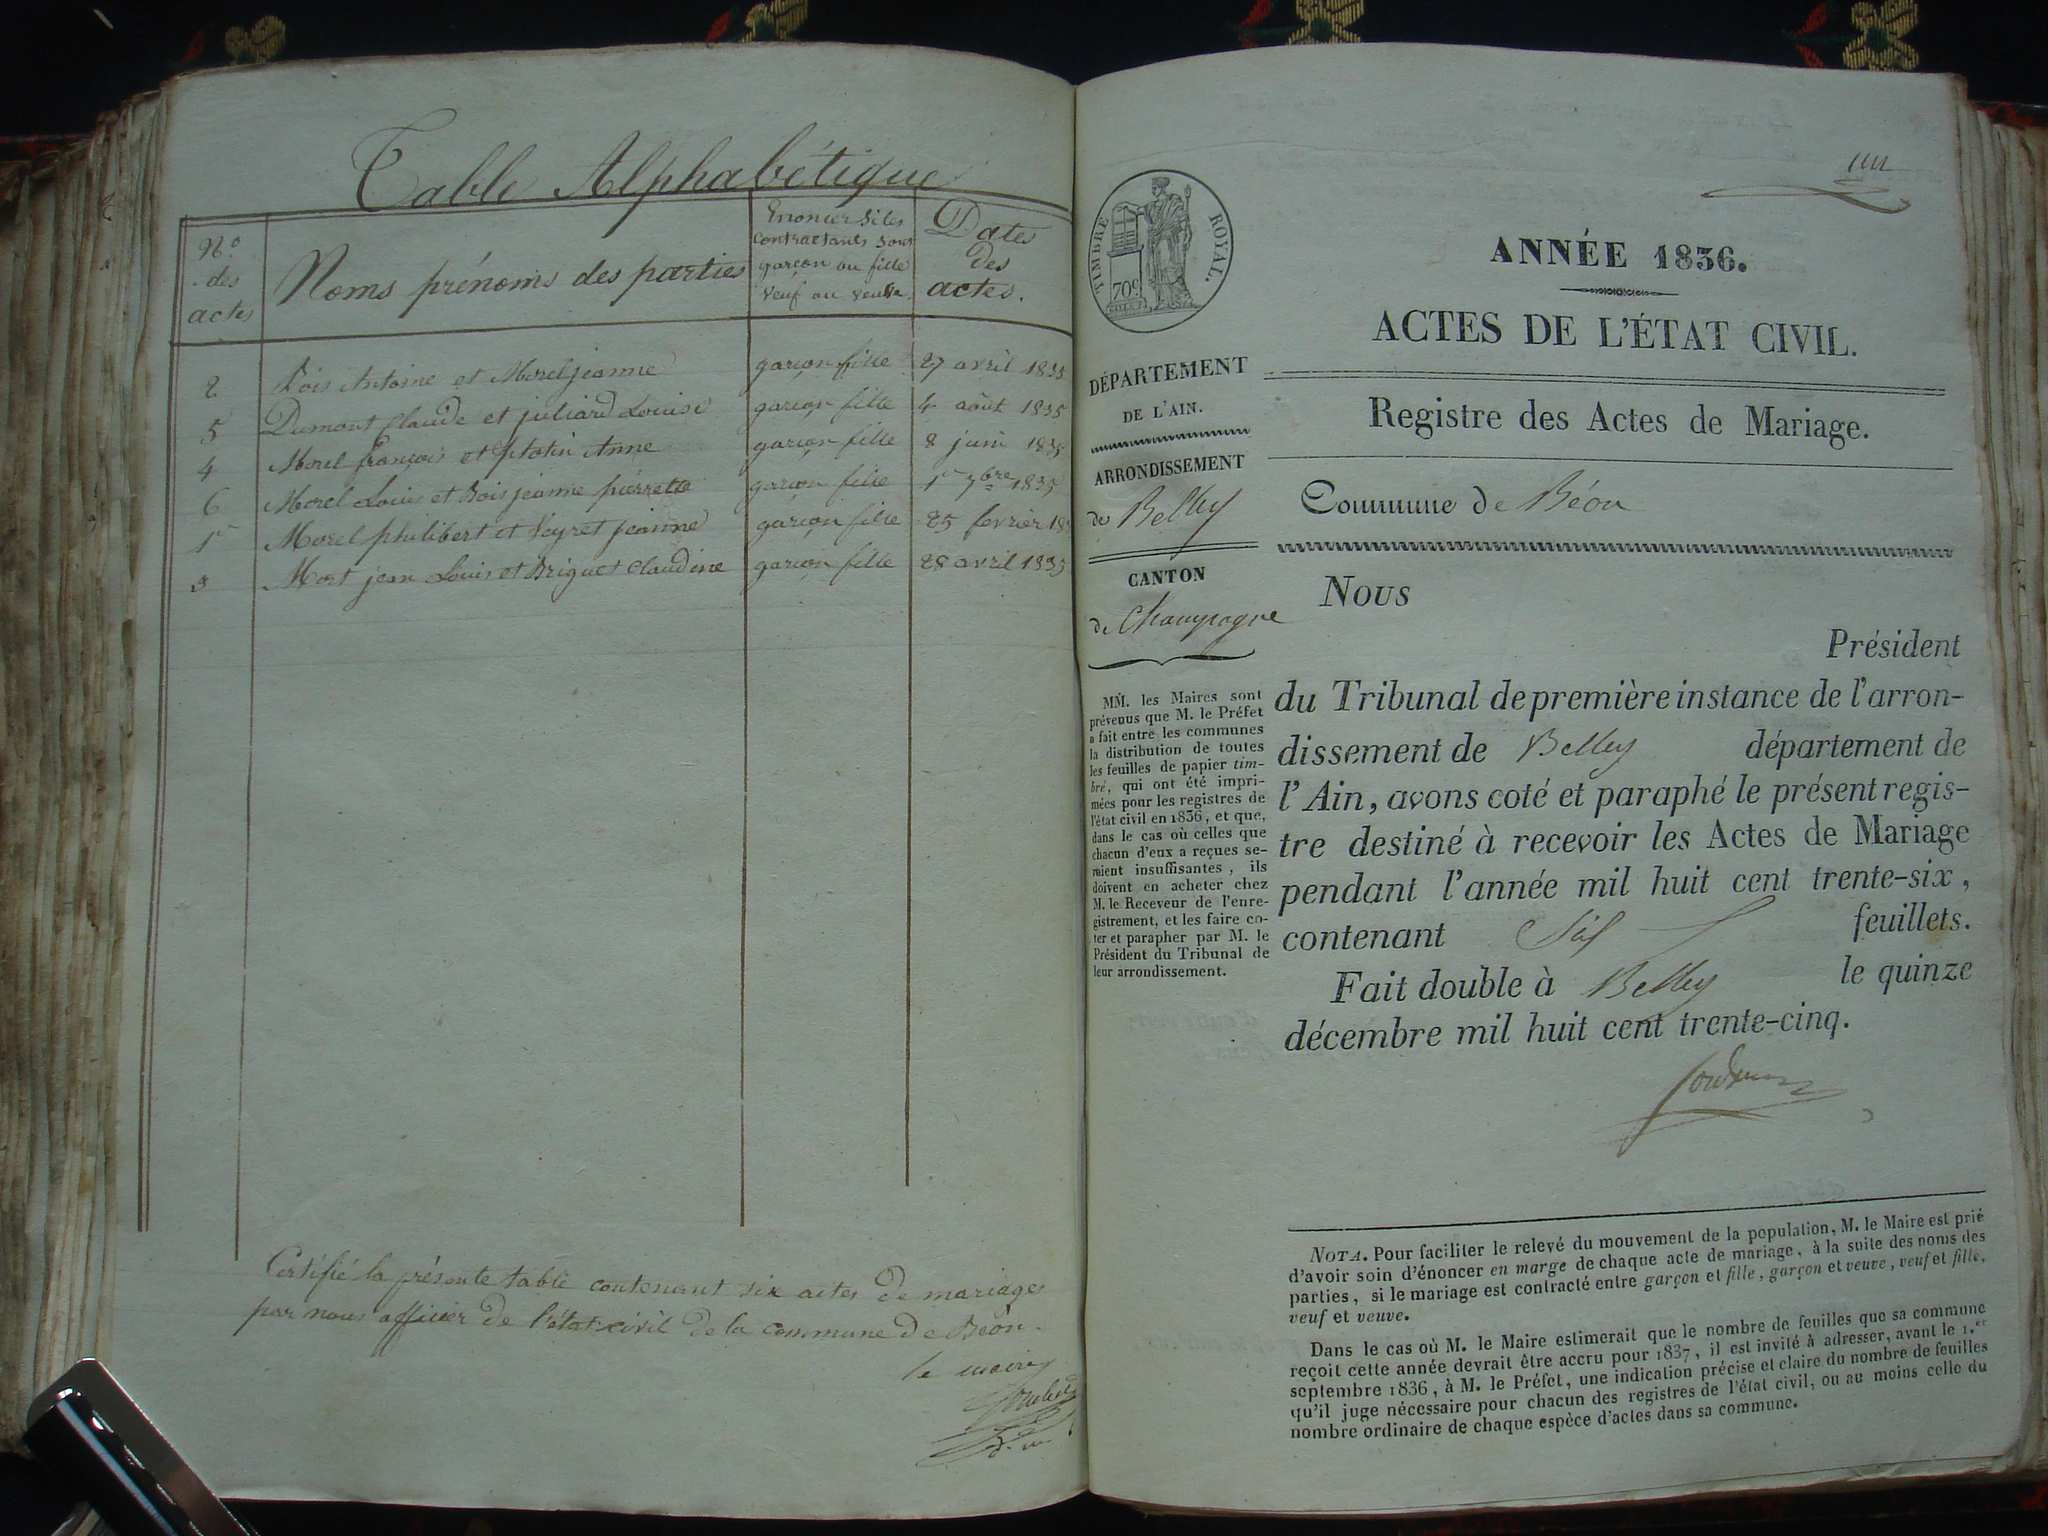 Table Alphabétique
N.o des actes
Noms prénoms des parties
Enoncer si les contractants sont garçon ou fille veuf ou veuve.
Dates des actes.
2 Bois Antoine et Morel jeanne garçon fille 27 avril 1835
5 Dumont Claude et juliard Louise garçon fille 4 août 1835
4 Morel françois et Anne garçon fille 8 juin 1835
6 Morel Louis et Bois jeanne pierrette garçon fille 1er 7bre 1835
1er Morel philibert et Veyret jeanne garçon fille 25 fevrier 18
3 Mort jean Louis et Briguet Claudine garçon fille 28 avril 1835
Certifié la présente table contenant six actes de mariages
par nous officier de l'état-civil de la commune de Béon.
le maire
TIMBRE ROYAL.
70c
ANNÉE 1836.
ACTES DE L'ÉTAT CIVIL.
Registre des Actes de Mariage.
Commune de Béon
DÉPARTEMENT
DE L'AIN.
ARRONDISSEMENT
de Belley
CANTON
de Champagne
MM. les Maires sont
prévenus que M. le Préfet
a fait entre les communes
la distribution de toutes
les feuilles de papier tim-
bré, qui ont été impri-
mées pour les registres de
l'état civil en 1836, et que,
dans le cas où celles que
chacun d'eux a reçues se-
raient insuffisantes, ils
doivent en acheter chez
M. le Receveur de l'enre-
gistrement, et les faire co-
ter et parapher par M. le
Président du Tribunal de
leur arrondissement.
Nous
Président
du Tribunal de première instance de l'arron-
dissement de Belley département de
l'Ain, avons coté et paraphé le présent regis-
tre destiné à recevoir les Actes de Mariage
pendant l'année mil huit cent trente-six,
contenant Six feuillets.
Fait double à Belley le quinze
décembre mil huit cent trente-cinq.
NOTA. Pour faciliter le relevé du mouvement de la population, M. le Maire est prié
d'avoir soin d'énoncer en marge de chaque acte de mariage, à la suite des noms des
parties, si le mariage est contracté entre garçon et fille, garçon et veuve, veuf et fille,
veuf et veuve.
Dans le cas où M. le Maire estimerait que le nombre de feuilles que sa commune
reçoit cette année devrait être accru pour 1837, il est invité à adresser, avant le 1.er
septembre 1836, à M. le Préfet, une indication précise et claire du nombre de feuilles
qu'il juge nécessaire pour chacun des registres de l'état civil, ou au moins celle du
nombre ordinaire de chaque espèce d'actes dans sa commune.